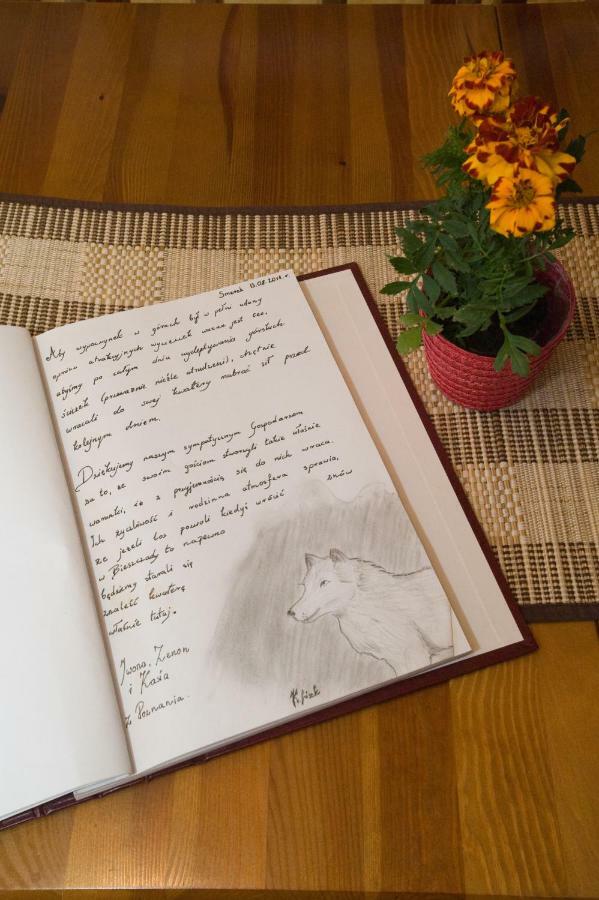 Smerek 13.08.2018 r.
Aby wypoczynek w górach był w pełni udany
oprócz atrakcyjnych wycieczek ważne jest też,
abyśmy po całym dniu wydeptywania górskich
ścieżek (przeważnie nieźle utrudzeni), chętnie
wracali do swej kwatery nabrać sił przed
kolejnym dniem.
Dziękujemy naszym sympatycznym Gospodarzom
za to, że swoim gościom stworzyli takie właśnie
warunki, że z przyjemnością się do nich wraca.
Ich życzliwość i rodzinna atmosfera sprawia,
że jeżeli los pozwoli kiedyś wrócić znów
w Bieszczady to na pewno
będziemy starali się
znaleźć kwaterę
właśnie tutaj.
Iwona, Zenon
i Kasia
z Poznania.